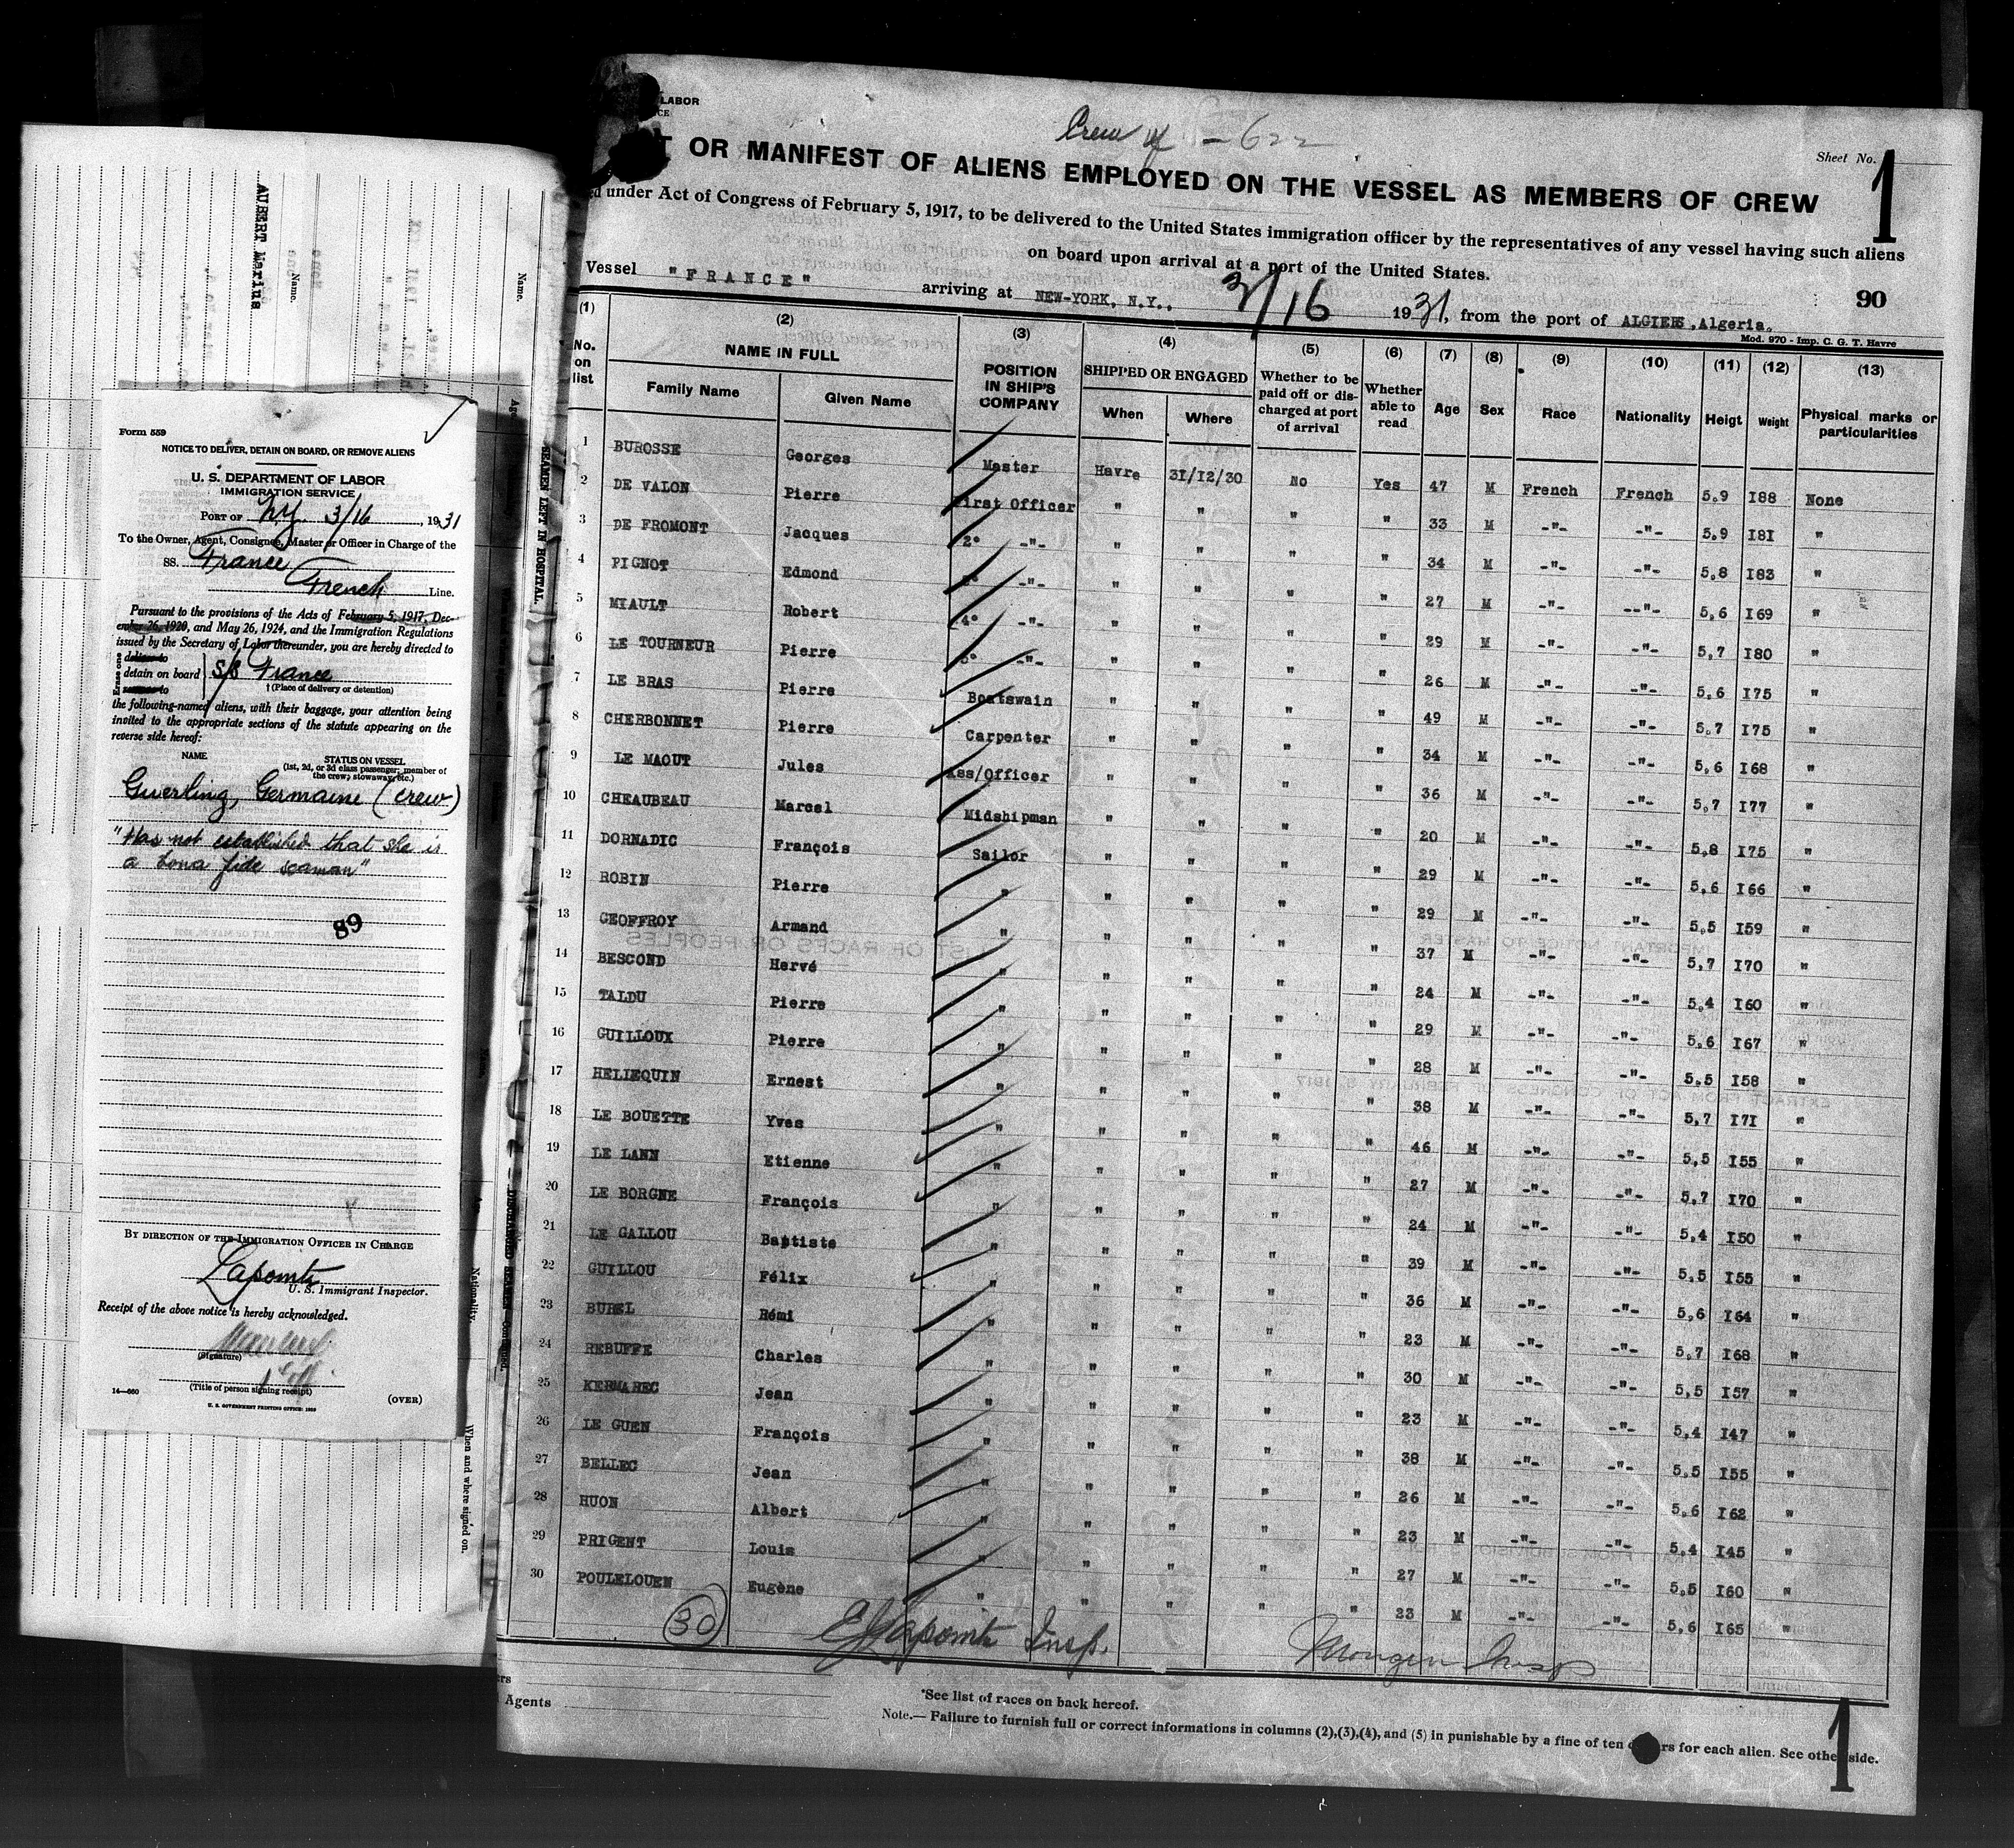 AUBERT Marius
Name.
Name.
SEAMEN LEFT IN HOSPITAL.
Nationality.
When and where signed on.
Form 559
NOTICE TO DELIVER, DETAIN ON BOARD, OR REMOVE ALIENS
U. S. DEPARTMENT OF LABOR
IMMIGRATION SERVICE
PORT OF N.Y. 3/16, 1931
To the Owner, Agent, Consignee, Master or Officer in Charge of the
SS. France
French Line.
Pursuant to the provisions of the Acts of February 5, 1917, Dec-
ember 26, 1920, and May 26, 1924, and the Immigration Regulations
issued by the Secretary of Labor thereunder, you are hereby directed to
Erase one
deliver to
detain on board } S/S France
remove to
† (Place of delivery or detention)
the following-named aliens, with their baggage, your attention being
invited to the appropriate sections of the statute appearing on the
reverse side hereof:
NAME STATUS ON VESSEL
(1st, 2d, or 3d class passenger; member of
the crew; stowaway, etc.)
Guerling, Germaine (crew)
"Has not established that she is
a bona fide seaman"
89
BY DIRECTION OF THE IMMIGRATION OFFICER IN CHARGE
Lapointe
U. S. Immigrant Inspector.
Receipt of the above notice is hereby acknowledged.
(Signature)
(Title of person signing receipt)
14—660 (OVER)
U. S. GOVERNMENT PRINTING OFFICE
LABOR
CE
Crew of - 622
Sheet No. 1
T OR MANIFEST OF ALIENS EMPLOYED ON THE VESSEL AS MEMBERS OF CREW
ed under Act of Congress of February 5, 1917, to be delivered to the United States immigration officer by the representatives of any vessel having such aliens
on board upon arrival at a port of the United States.
Vessel "FRANCE" arriving at NEW-YORK, N.Y., 3/16 1931, from the port of ALGIERS, Algeria.
90
Mod. 970 - Imp. C. G. T. Havre
(1) (2) (3) (4) (5) (6) (7) (8) (9) (10) (11) (12) (13)
No. on list NAME IN FULL Family Name Given Name POSITION IN SHIP'S COMPANY SHIPPED OR ENGAGED When Where Whether to be paid off or dis-charged at port of arrival Whether able to read Age Sex Race Nationality Heigt Weight Physical marks or particularities
1 BUROSSE Georges Master Havre 31/12/30 No Yes 47 M French French 5.9 I88 None
2 DE VALON Pierre First Officer " " " " 33 M -"- -"- 5.9 I8I "
3 DE FROMONT Jacques 2° -"- " " " " 34 M -"- -"- 5.8 I83 "
4 PIGNOT Edmond 3° -"- " " " " 27 M -"- -"- 5.6 I69 "
5 MIAULT Robert 4° -"- " " " " 29 M -"- -"- 5.7 I80 "
6 LE TOURNEUR Pierre 5° -"- " " " " 26 M -"- -"- 5.6 I75 "
7 LE BRAS Pierre Boatswain " " " " 49 M -"- -"- 5.7 I75 "
8 CHERBONNET Pierre Carpenter " " " " 34 M -"- -"- 5.6 I68 "
9 LE MAOUT Jules Ass/Officer " " " " 36 M -"- -"- 5.7 I77 "
10 CHEAUBEAU Marcel Midshipman " " " " 20 M -"- -"- 5.8 I75 "
11 DORNADIC François Sailor " " " " 29 M -"- -"- 5.6 I66 "
12 ROBIN Pierre " " " " " 29 M -"- -"- 5.5 I59 "
13 GEOFFROY Armand " " " " " 37 M -"- -"- 5.7 I70 "
14 BESCOND Hervé " " " " " 24 M -"- -"- 5.4 I60 "
15 TALDU Pierre " " " " " 29 M -"- -"- 5.6 I67 "
16 GUILLOUX Pierre " " " " " 28 M -"- -"- 5.5 I58 "
17 HELIEQUIN Ernest " " " " " 38 M -"- -"- 5.7 I7I "
18 LE BOUETTE Yves " " " " " 46 M -"- -"- 5.5 I55 "
19 LE LANN Etienne " " " " " 27 M -"- -"- 5.7 I70 "
20 LE BORGNE François " " " " " 24 M -"- -"- 5.4 I50 "
21 LE GALLOU Baptiste " " " " " 39 M -"- -"- 5.5 I55 "
22 GUILLOU Félix " " " " " 36 M -"- -"- 5.6 I64 "
23 BUREL Rémi " " " " " 23 M -"- -"- 5.7 I68 "
24 REBUFFE Charles " " " " " 30 M -"- -"- 5.5 I57 "
25 KERMAREC Jean " " " " " 23 M -"- -"- 5.4 I47 "
26 LE GUEN François " " " " " 38 M -"- -"- 5.5 I55 "
27 BELLEC Jean " " " " " 26 M -"- -"- 5.6 I62 "
28 HUON Albert " " " " " 23 M -"- -"- 5.4 I45 "
29 PRIGENT Louis " " " " " 27 M -"- -"- 5.5 I60 "
30 POULELOUEN Eugène " " " " " 23 M -"- -"- 5.6 I65 "
30 E Lapointe Insp. Mongin Insp
rs
Agents
*See list of races on back hereof.
Note.— Failure to furnish full or correct informations in columns (2),(3),(4), and (5) in punishable by a fine of ten rs for each alien. See other side.
1